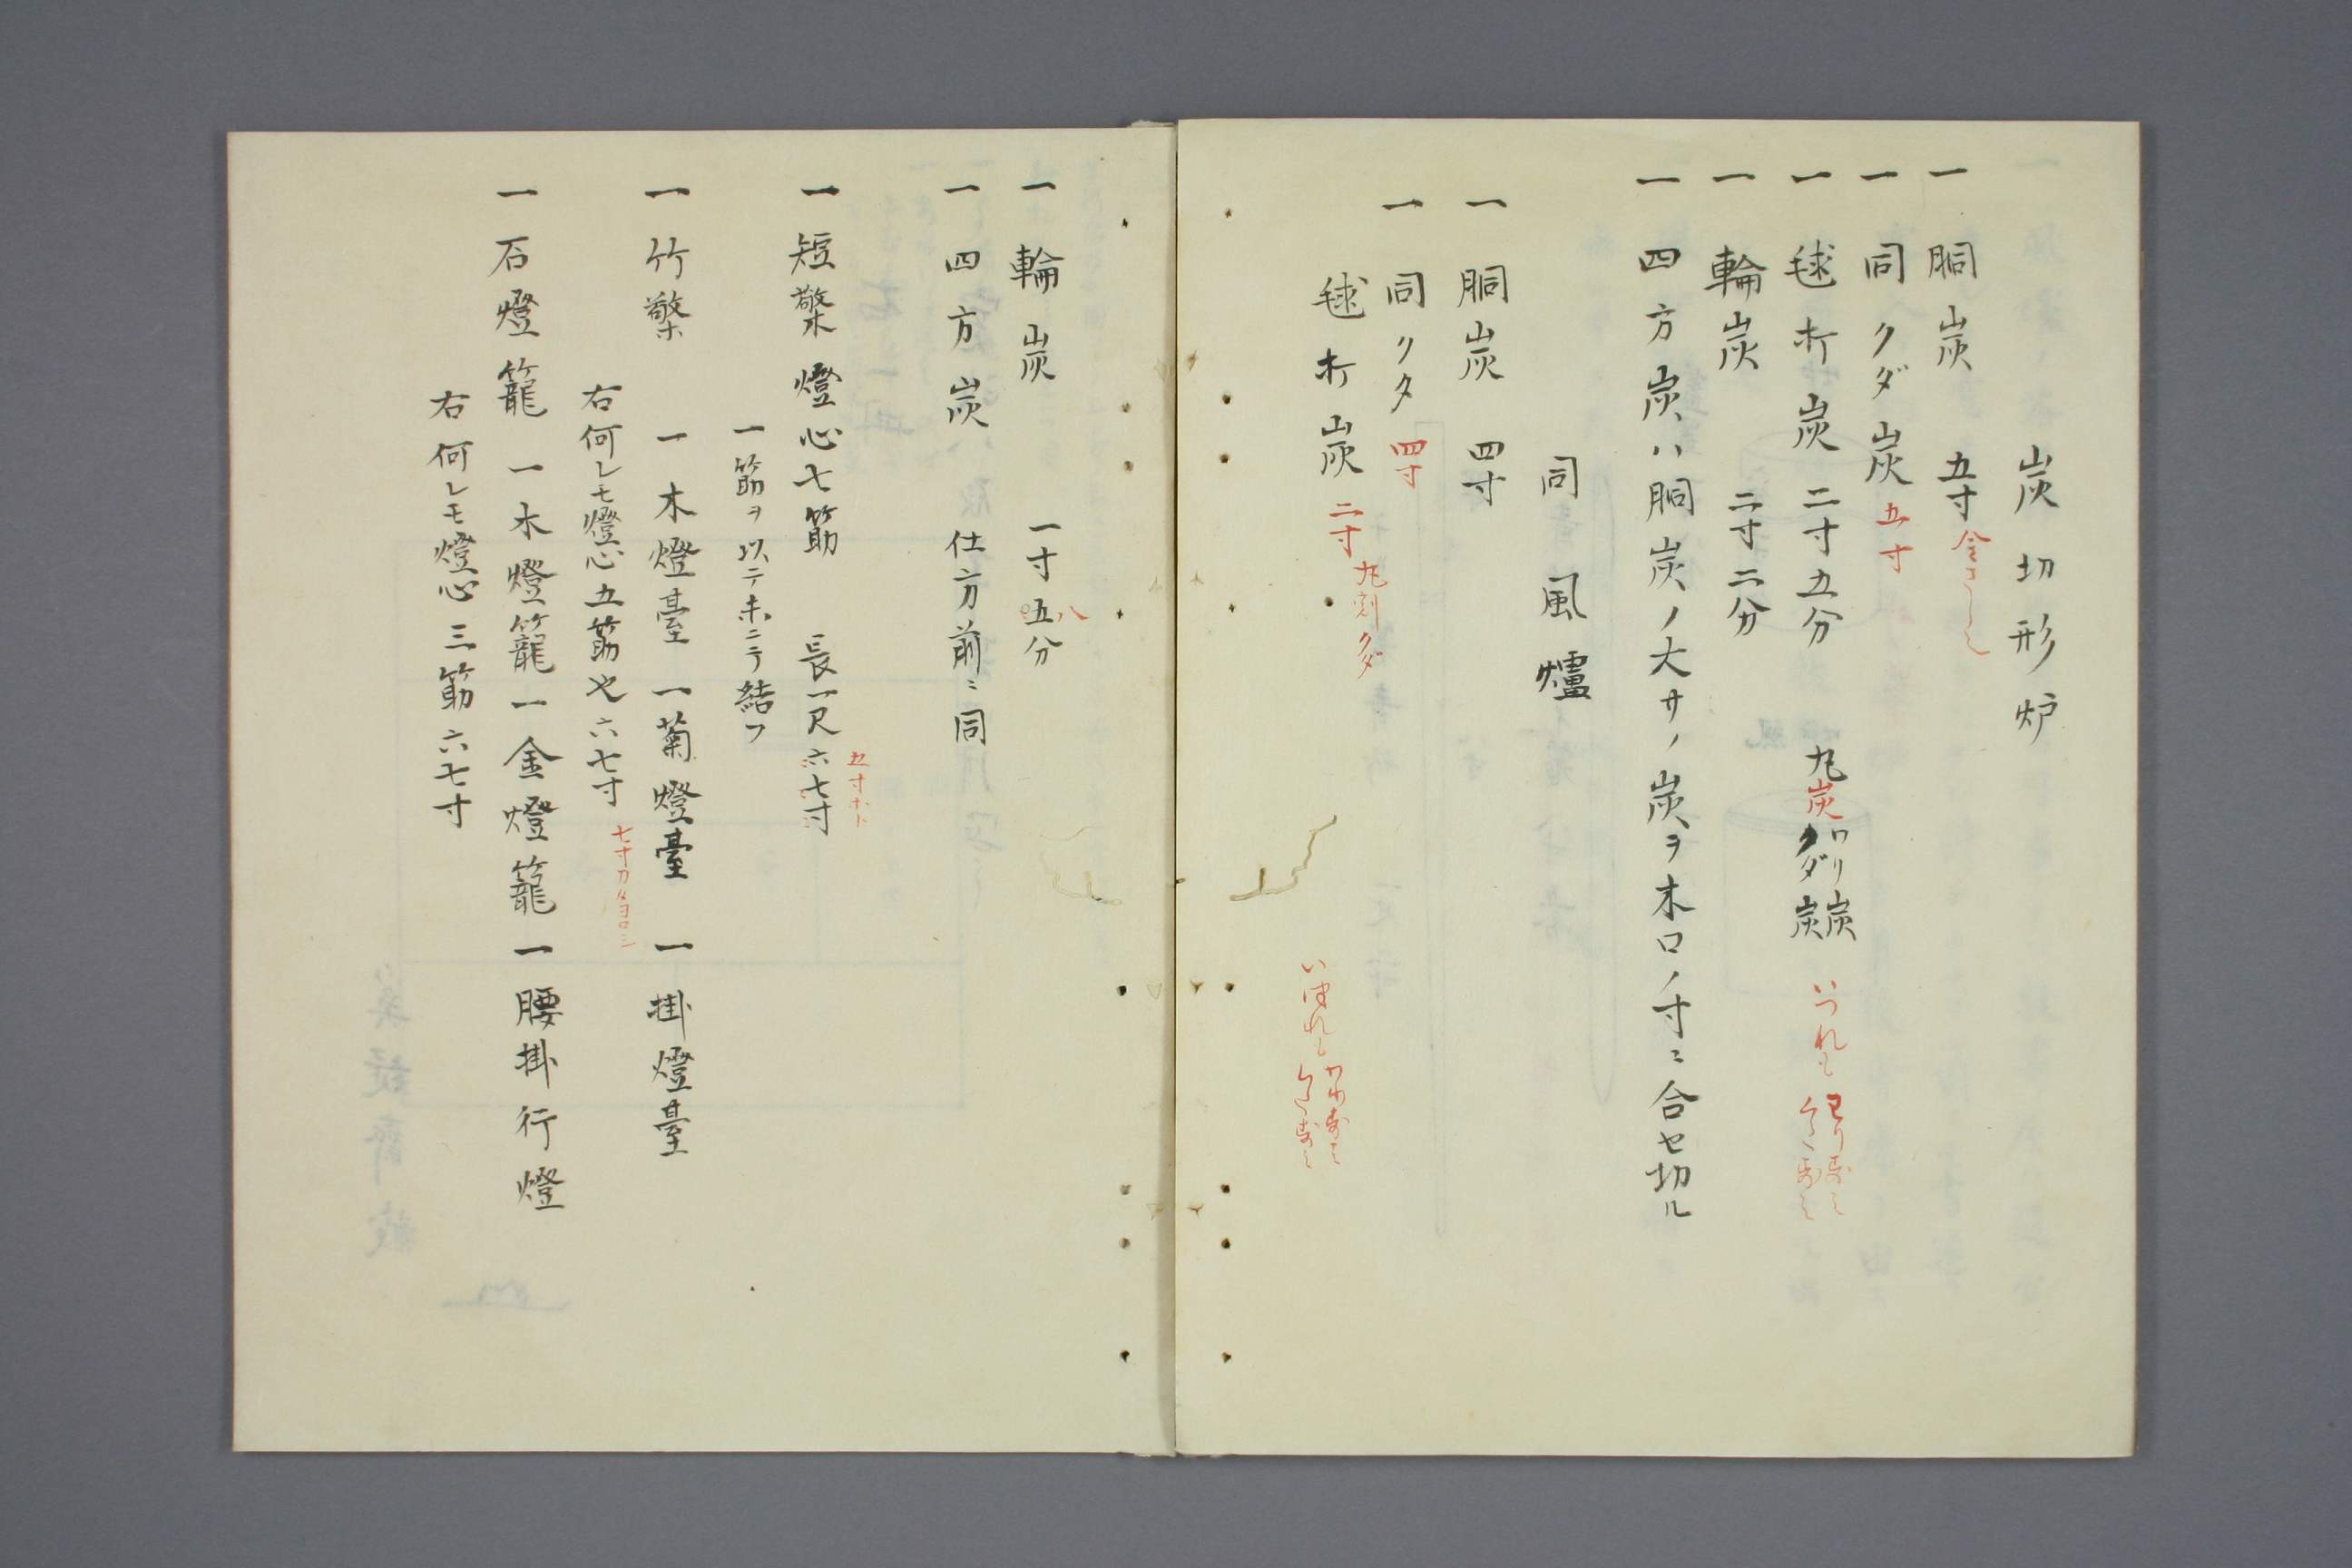 炭切形炉
一 胴炭 五寸
一 同クダ炭 五寸
一 毬打炭 二寸五分 丸炭 ワリ炭 クダ炭 いつれも
一 輪炭 二寸二分
一 四方炭ハ胴炭ノ大サノ炭ヲ木口ノ寸ニ合セ切ル
同風爐
一 胴炭 四寸
一 同クタ 四寸
毬打炭 二寸 丸割クダ
一 輪炭 一寸五分 八
一 四方炭 仕方前ニ同
一 短檠燈心七筋 長一尺六七寸
一筋ヲ以テ末ニテ結フ
一 竹檠 一木燈臺 一菊燈臺 一掛燈臺
右何レモ燈心五筋也六七寸
一 石燈籠 一木燈籠 一金燈籠 一腰掛行燈
右何レモ燈心三筋六七寸